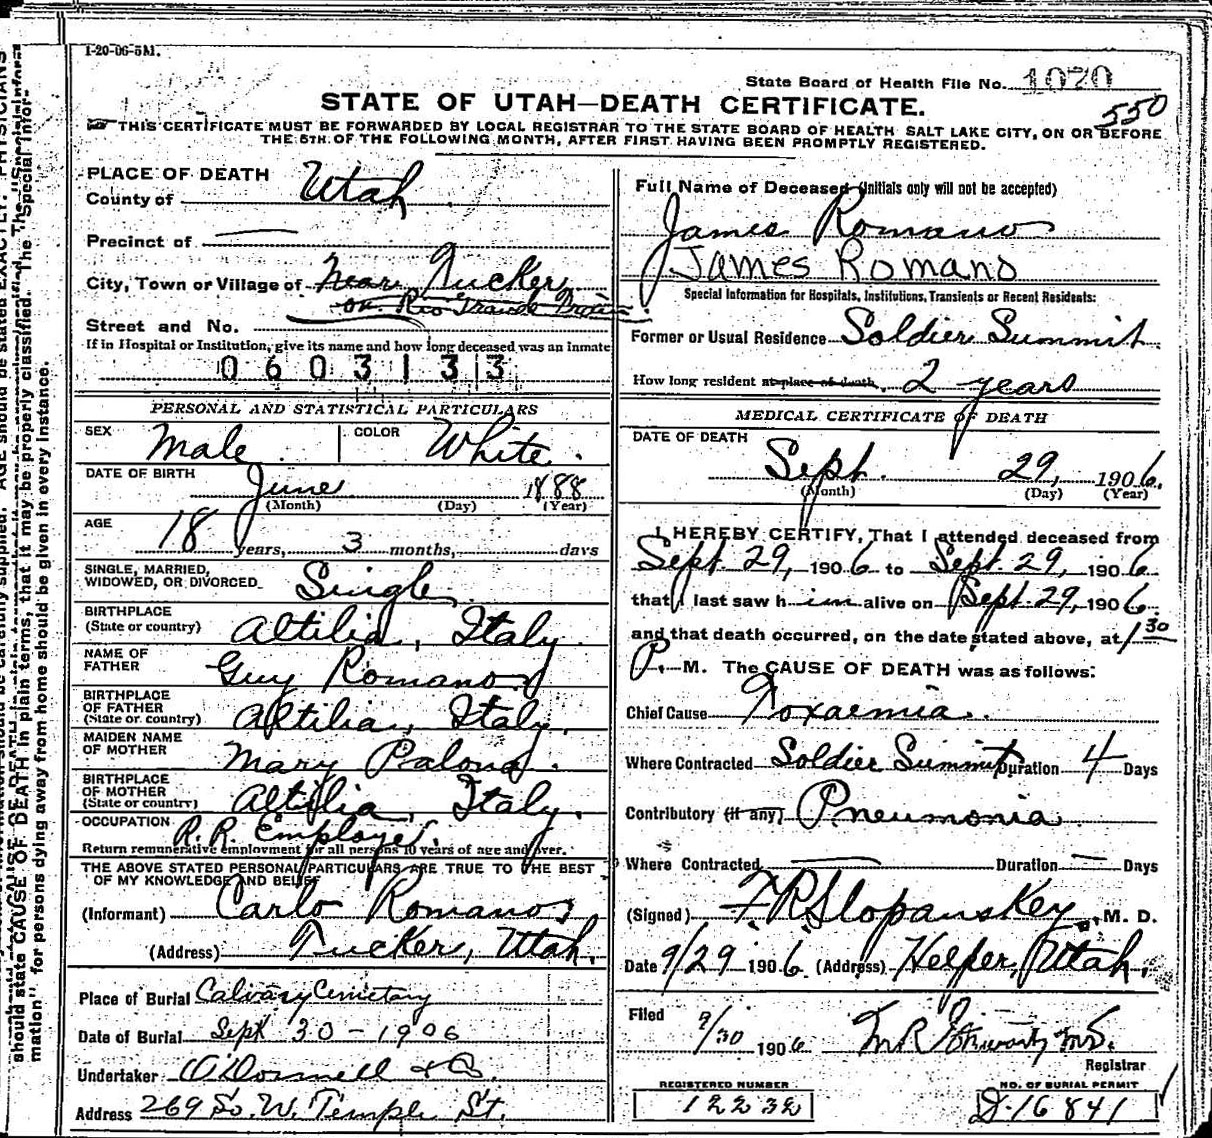 1-20-06-5M.
State Board of Health File No. 1070
550
STATE OF UTAH—DEATH CERTIFICATE.
THIS CERTIFICATE MUST BE FORWARDED BY LOCAL REGISTRAR TO THE STATE BOARD OF HEALTH SALT LAKE CITY, ON OR BEFORE
THE 5TH OF THE FOLLOWING MONTH, AFTER FIRST HAVING BEEN PROMPTLY REGISTERED.
PLACE OF DEATH
County of Utah
Precinct of
City, Town or Village of Near Tucker
on Rio Grande Train
Street and No.
If in Hospital or Institution, give its name and how long deceased was an inmate
0603133
PERSONAL AND STATISTICAL PARTICULARS
SEX Male COLOR White
DATE OF BIRTH June 1888
(Month) (Day) (Year)
AGE 18 years, 3 months, days
SINGLE, MARRIED,
WIDOWED, OR DIVORCED Single
BIRTHPLACE
(State or country) Altilia, Italy
NAME OF
FATHER Guy Romano
BIRTHPLACE
OF FATHER
(State or country) Altilia, Italy
MAIDEN NAME
OF MOTHER Mary Palona
BIRTHPLACE
OF MOTHER
(State or country) Altilia, Italy.
OCCUPATION R.R. Employe.
Return remunerative employment for all persons 10 years of age and over.
THE ABOVE STATED PERSONAL PARTICULARS ARE TRUE TO THE BEST
OF MY KNOWLEDGE AND BELIEF
(Informant) Carlo Romano
(Address) Tucker, Utah.
Place of Burial Calvary Cemetary
Date of Burial Sept 30-1906
Undertaker O'Donnell & Co.
Address 269 So. W. Temple St.
Full Name of Deceased (Initials only will not be accepted)
James Romano
JAMES ROMANO
Special Information for Hospitals, Institutions, Transients or Recent Residents:
Former or Usual Residence Soldier Summit
How long resident at place of death. 2 years
MEDICAL CERTIFICATE OF DEATH
DATE OF DEATH
Sept. 29, 1906.
(Month) (Day) (Year)
I HEREBY CERTIFY, That I attended deceased from
Sept. 29, 1906 to Sept. 29, 1906
that I last saw him alive on Sept. 29, 1906.
and that death occurred, on the date stated above, at 1 30
P. M. The CAUSE OF DEATH was as follows:
Chief Cause Toxaemia.
Where Contracted Soldier Summit Duration 4 Days
Contributory (if any) Pneumonia
Where Contracted Duration Days
(Signed) F. R. Slopanskey, M. D.
Date 9/29 1906 (Address) Helper, Utah.
Filed 9/30 1906
Registrar
REGISTERED NUMBER
12232
NO. OF BURIAL PERMIT
D-16841
should state CAUSE OF DEATH in plain terms, that it may be properly classified. The "Special Infor-
mation" for persons dying away from home should be given in every instance.